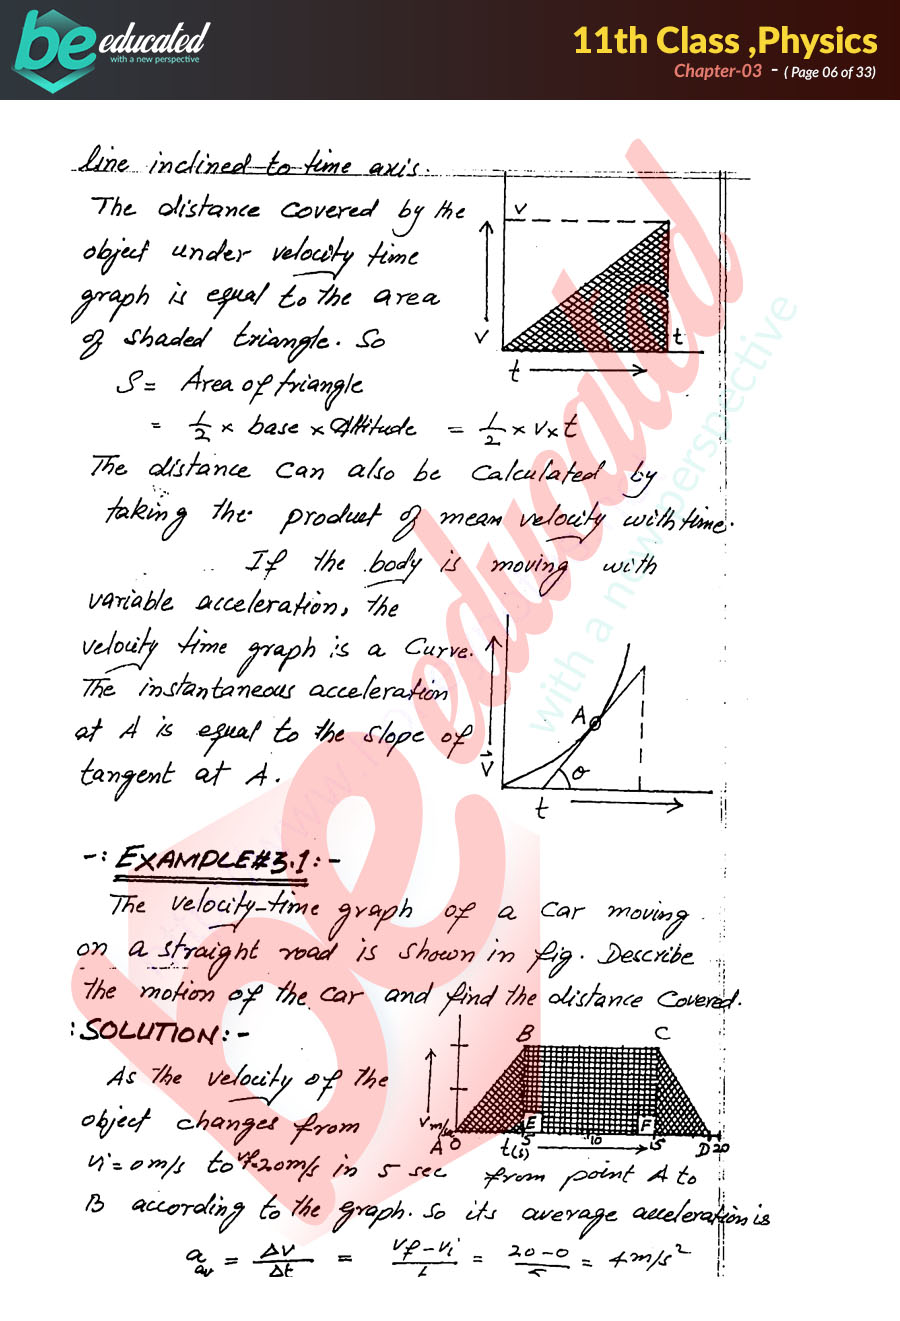 be educated
with a new perspective
11th Class ,Physics
Chapter-03 - ( Page 06 of 33)
line inclined to time axis.
The distance covered by the
object under velocity time
graph is equal to the area
of shaded triangle. So
S = Area of triangle
= 1/2 × base × Altitude = 1/2 × v × t
v
v
t
t
The distance can also be calculated by
taking the product of mean velocity with time.
If the body is moving with
variable acceleration, the
velocity time graph is a curve.
The instantaneous acceleration
at A is equal to the slope of
tangent at A.
A
θ
v
t
-: EXAMPLE#3.1:-
The velocity-time graph of a car moving
on a straight road is shown in fig. Describe
the motion of the car and find the distance covered.
:SOLUTION:-
As the velocity of the
object changes from
vi = 0m/s to vf=20m/s in 5 sec from point A to
B C
V m/s
E F
A 0 5 10 15 D 20
t(s)
B according to the graph. So its average acceleration is
a av = Δv/Δt = vf-vi/t = 20-0/5 = 4m/s²
be educated
with a new perspective